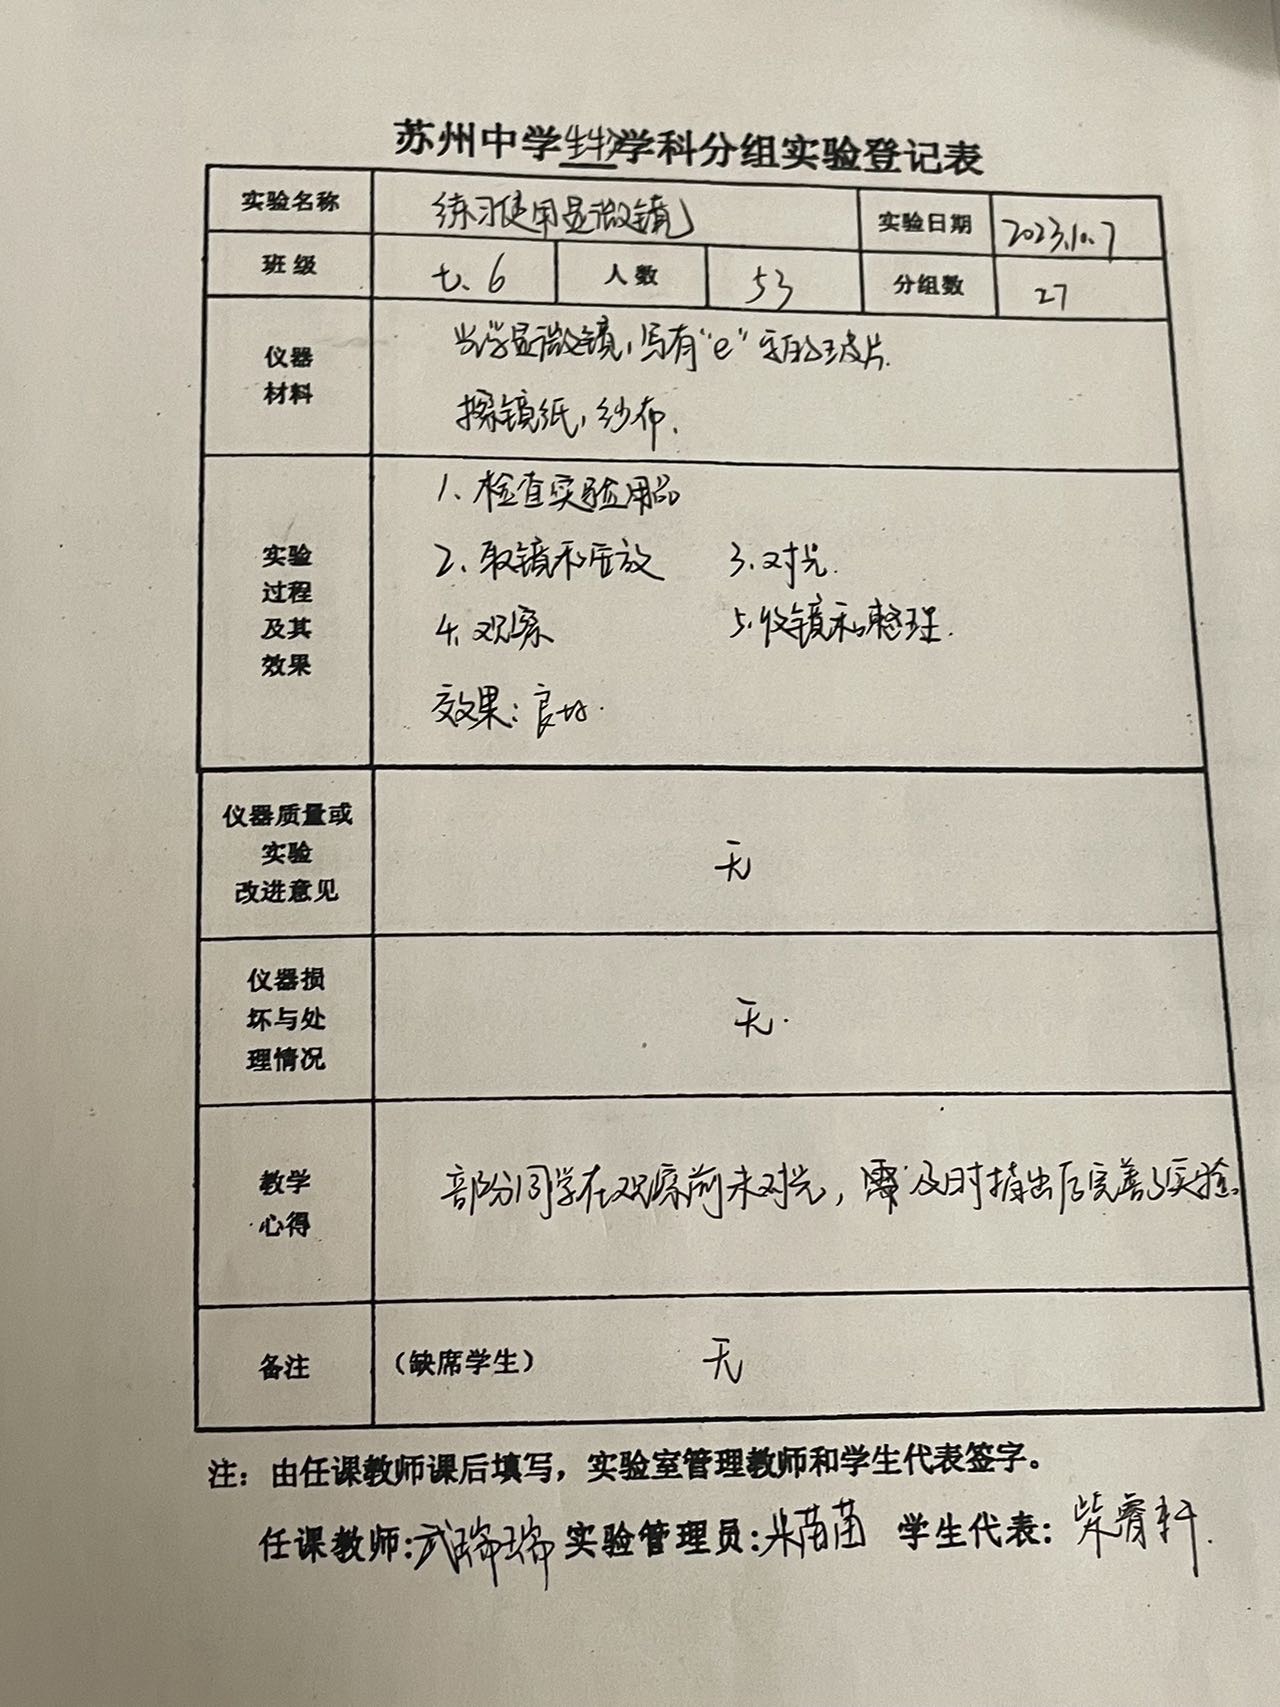 苏州中学生物学科分组实验登记表
实验名称 练习使用显微镜 实验日期 2023.10.7
班级 七、6 人数 53 分组数 27
仪器
材料
光学显微镜,写有"e"字的玻片.
擦镜纸,纱布.
实验
过程
及其
效果
1、检查实验用品
2、取镜和安放 3.对光.
4.观察 5.收镜和整理.
效果:良好.
仪器质量或
实验
改进意见
无
仪器损
坏与处
理情况
无.
教学
心得
部分同学在观察前未对光, 及时指出后完善了实验.
备注 (缺席学生) 无
注:由任课教师课后填写,实验室管理教师和学生代表签字。
任课教师:武瑞瑞 实验管理员:朱苗苗 学生代表:柴睿轩.